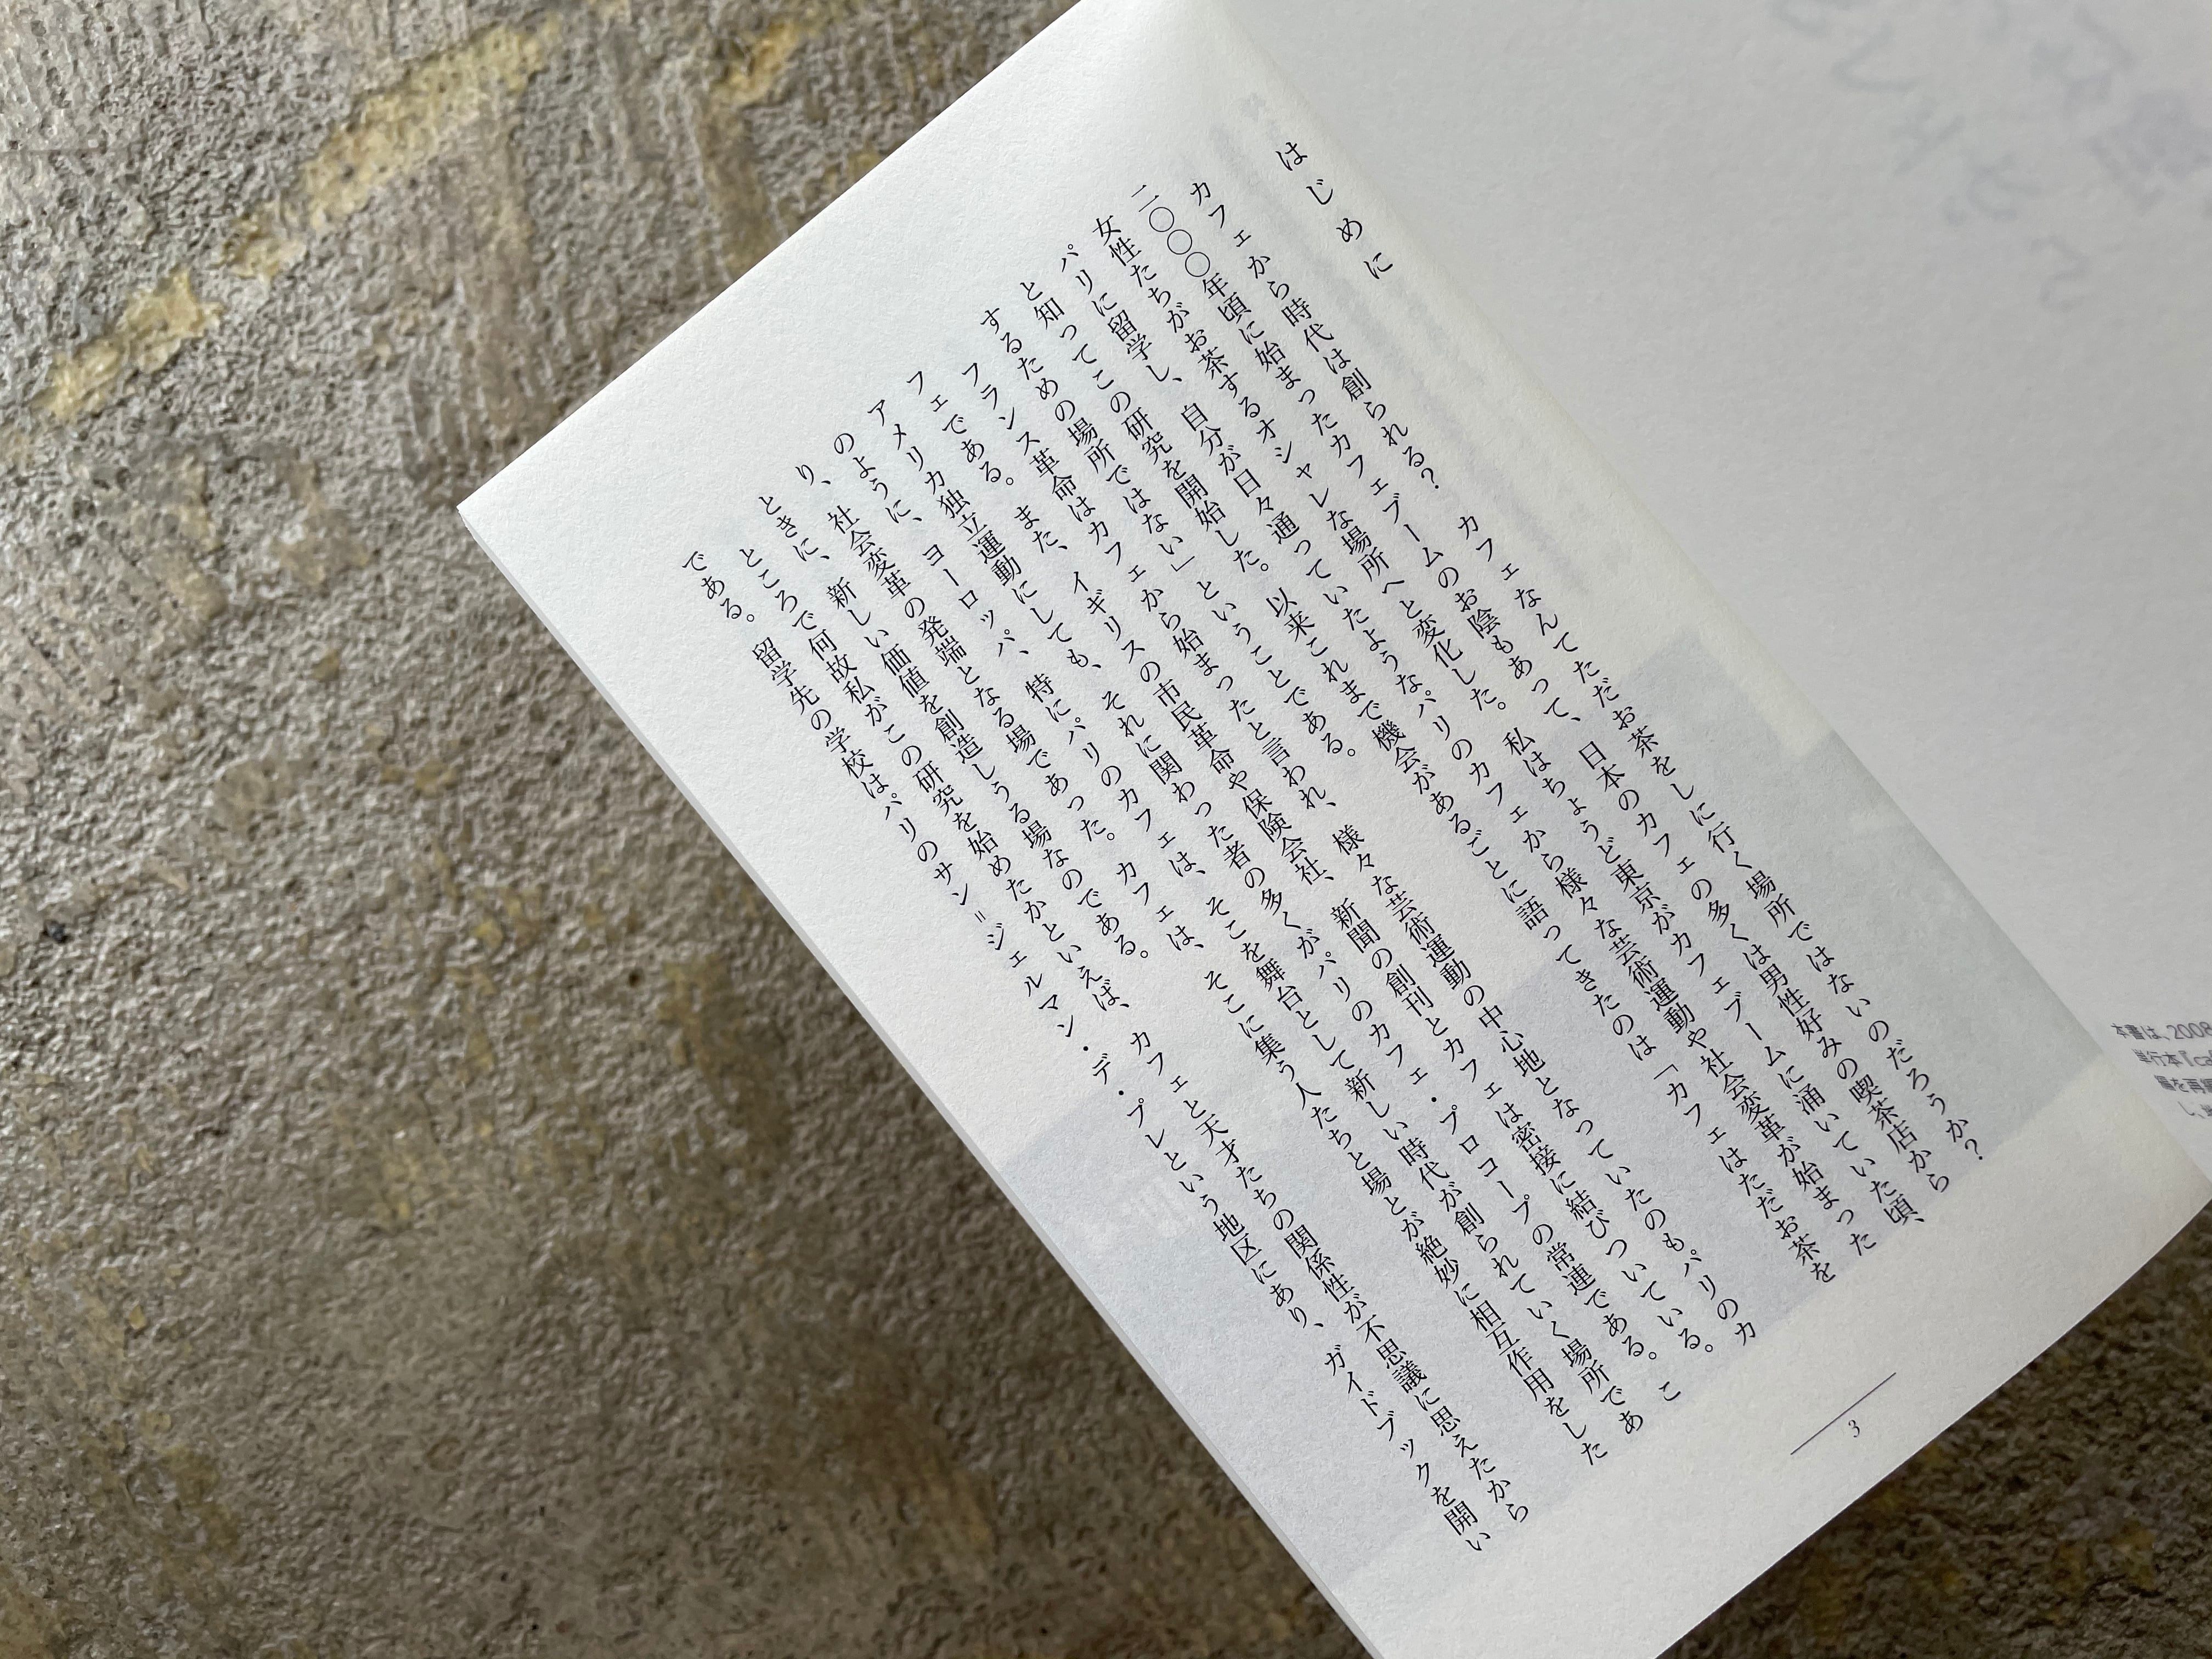 本書は、2008
単行本『ca
はじめに
カフェから時代は創られる? カフェなんてただお茶をしに行く場所ではないのだろうか?
二〇〇〇年頃に始まったカフェブームのお陰もあって、日本のカフェの多くは男性好みの喫茶店から
女性たちがお茶するオシャレな場所へと変化した。私はちょうど東京がカフェブームに涌いていた頃、
パリに留学し、自分が日々通っていたようなパリのカフェから様々な芸術運動や社会変革が始まった
と知ってこの研究を開始した。以来これまで機会があるごとに語ってきたのは「カフェはただお茶を
するための場所ではない」ということである。
フランス革命はカフェから始まったと言われ、様々な芸術運動の中心地となっていたのもパリのカ
フェである。また、イギリスの市民革命や保険会社、新聞の創刊とカフェは密接に結びついている。
アメリカ独立運動にしても、それに関わった者の多くがパリのカフェ・プロコープの常連である。こ
のように、ヨーロッパ、特にパリのカフェは、そこを舞台として新しい時代が創られていく場所であ
り、社会変革の発端となる場であった。カフェは、そこに集う人たちと場とが絶妙に相互作用をした
ときに、新しい価値を創造しうる場なのである。
ところで何故私がこの研究を始めたかといえば、カフェと天才たちの関係性が不思議に思えたから
である。留学先の学校はパリのサン=ジェルマン・デ・プレという地区にあり、ガイドブックを開い
3